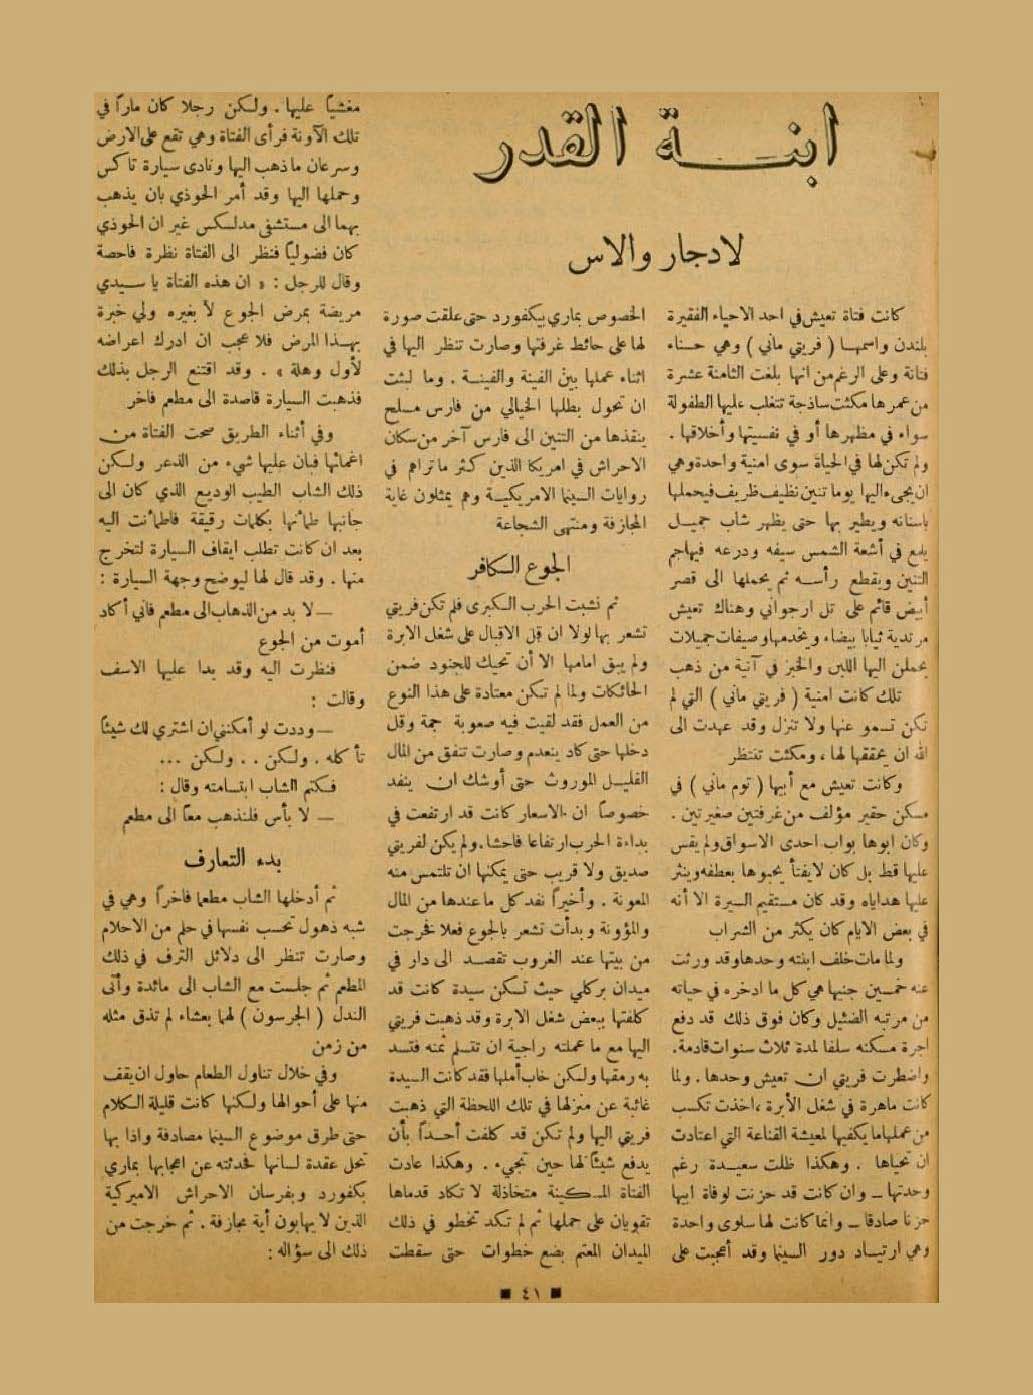 ابنة القدر
لادجار والاس
كانت فتاة تعيش في احد الاحياء الفقيرة
بلندن واسمها ( فريتي ماني ) وهي حسناء
فتانة وعلى الرغم من انها بلغت الثامنة عشرة
من عمرها مكثت ساذجة تتغلب عليها الطفولة
سواء في مظهرها أو في نفسيتها وأخلاقها .
ولم تكن لها في الحياة سوى امنية واحدة وهي
ان يجيء اليها يوما تنين نظيف ظريف فيحملها
باسنانه ويطير بها حتى يظهر شاب جميل
يلمع في أشعة الشمس سيفه ودرعه فيهاجم
التنين ويقطع رأسه ثم يحملها الى قصر
أبيض قائم على تل ارجواني وهناك تعيش
مرتدية ثيابا بيضاء ويخدمها وصيفات جميلات
يحملن اليها اللبن والخبز في آنية من ذهب
تلك كانت امنية ( فريتي ماني ) التي لم
تكن تسمو عنها ولا تنزل وقد عهدت الى
الله ان يحققها لها ، ومكثت تنتظر
وكانت تعيش مع أبيها ( توم ماني ) في
مسكن حقير مؤلف من غرفتين صغيرتين .
وكان ابوها بواب احدى الاسواق ولم يقس
عليها قط بل كان لايفتأ يحبوها بعطفه وينثر
عليها هداياه وقد كان مستقيم السيرة الا أنه
في بعض الايام كان يكثر من الشراب
ولما مات خلف ابنته وحدها وقد ورثت
عنه خمسين جنيها هي كل ما ادخره في حياته
من مرتبه الضئيل وكان فوق ذلك قد دفع
اجرة مسكنه سلفا لمدة ثلاث سنوات قادمة .
واضطرت فريتي ان تعيش وحدها . ولما
كانت ماهرة في شغل الأبرة ، اخذت تكسب
من عملها ما يكفيها لمعيشة القناعة التي اعتادت
ان تحياها . وهكذا ظلت سعيدة رغم
وحدتها ــ وان كانت قد حزنت لوفاة ابيها
حزنا صادقا ــ وانما كانت لها سلوى واحدة
وهي ارتياد دور السينما وقد أعجبت على
الخصوص بماري بيكفورد حتى علقت صورة
لها على حائط غرفتها وصارت تنظر اليها في
اثناء عملها بين الفينة والفينة . وما لبثت
ان تحول بطلها الخيالي من فارس مسلح
ينقذها من التنين الى فارس آخر من سكان
الاحراش في امريكا الذين كثر ما تراهم في
روايات السينما الامريكية وهم يمثلون غاية
المجازفة ومنتهى الشجاعة
الجوع الكافر
ثم نشبت الحرب الكبرى فلم تكن فريتي
تشعر بها لولا ان قل الاقبال على شغل الابرة
ولم يبق امامها الا أن تحيك للجنود ضمن
الحائكات ولما لم تكن معتادة على هذا النوع
من العمل فقد لقيت فيه صعوبة جمة وقل
دخلها حتى كاد ينعدم وصارت تنفق من المال
القليل الموروث حتى أوشك ان ينفد
خصوصاً ان الاسعار كانت قد ارتفعت في
بداءة الحرب ارتفاعا فاحشا . ولم يكن لفريتي
صديق ولا قريب حتى يمكنها ان تلتمس منه
المعونة . وأخيراً نفد كل ما عندها من المال
والمؤونة وبدأت تشعر بالجوع فعلا فخرجت
من بيتها عند الغروب تقصد الى دار في
ميدان بركلي حيث تسكن سيدة كانت قد
كلفتها ببعض شغل الابرة وقد ذهبت فريتي
اليها مع ما عملته راجية ان تتسلم ثمنه فتسد
به رمقها ولكن خاب أملها فقد كانت السيدة
غائبة عن منزلها في تلك اللحظة التي ذهبت
فريتي اليها ولم تكن قد كلفت أحداً بأن
يدفع شيئا لها حين تجيء . وهكذا عادت
الفتاة المسكينة متخاذلة لا تكاد قدماها
تقويان على حملها ثم لم تكد تخطو في ذلك
الميدان المعتم بضع خطوات حتى سقطت
مغشياً عليها . ولكن رجلا كان ماراً في
تلك الآونة فرأى الفتاة وهي تقع على الارض
وسرعان ما ذهب اليها ونادى سيارة تاكس
وحملها اليها وقد أمر الحوذي بان يذهب
بهما الى مستشفى مدلسكس غير ان الحوذي
كان فضولياً فنظر الى الفتاة نظرة فاحصة
وقال للرجل : « ان هذه الفتاة يا سيدي
مريضة بمرض الجوع لا بغيره ولي خبرة
بهذا المرض فلا عجب ان ادرك اعراضه
لأول وهلة » . وقد اقتنع الرجل بذلك
فذهبت السيارة قاصدة الى مطعم فاخر
وفي أثناء الطريق صحت الفتاة من
اغمائها فبان عليها شيء من الذعر ولكن
ذلك الشاب الطيب الوديع الذي كان الى
جانبها طمأنها بكلمات رقيقة فاطمأنت اليه
بعد ان كانت تطلب ايقاف السيارة لتخرج
منها . وقد قال لها ليوضح وجهة السيارة :
ــ لا بد من الذهاب الى مطعم فاني أكاد
أموت من الجوع
فنظرت اليه وقد بدا عليها الاسف
وقالت :
ــ وددت لو أمكنني ان اشتري لك شيئاً
تأكله . ولكن . . ولكن ...
فكتم الشاب ابتسامته وقال :
ــ لا بأس فلنذهب معاً الى مطعم
بدء التعارف
ثم أدخلها الشاب مطعما فاخراً وهي في
شبه ذهول تحسب نفسها في حلم من الاحلام
وصارت تنظر الى دلائل الترف في ذلك
المطعم ثم جلست مع الشاب الى مائدة وأتى
الندل ( الجرسون ) لهما بعشاء لم تذق مثله
من زمن
وفي خلال تناول الطعام حاول ان يقف
منها على أحوالها ولكنها كانت قليلة الكلام
حتى طرق موضوع السينما مصادفة واذا بها
تحل عقدة لسانها فحدثته عن اعجابها بماري
بكفورد وبفرسان الاحراش الاميركية
الذين لا يهابون أية مجازفة . ثم خرجت من
ذلك الى سؤاله :
■ ٤١ ■